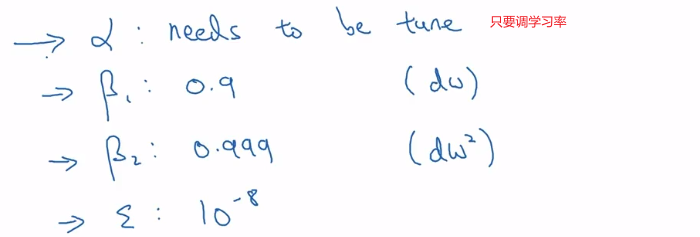 → α : needs to be tune 只要调学习率
→ β₁ : 0.9 (dw)
→ β₂ : 0.999 (dw²)
→ ε : 10⁻⁸